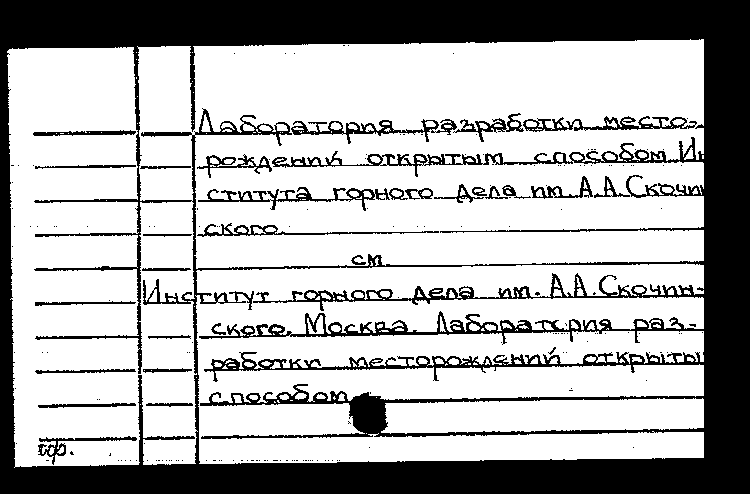 Лаборатория разработки место-
рождений открытым способом Ин
ститута горного дела им. А.А. Скочин
ского.
см
Институт горного дела им. А.А. Скочин-
ского. Москва. Лаборатория раз-
работки месторождений открыты
способом